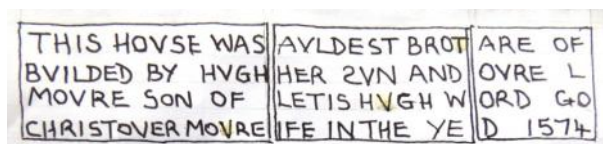 THIS HOVSE WAS
BVILDED BY HVGH
MOVRE SON OF
CHRISTOVER MOVRE
AVLDEST BROT
HER 2VN AND
LETIS HVGH W
IFE IN THE YE
ARE OF
OVRE L
ORD GO
D 1574